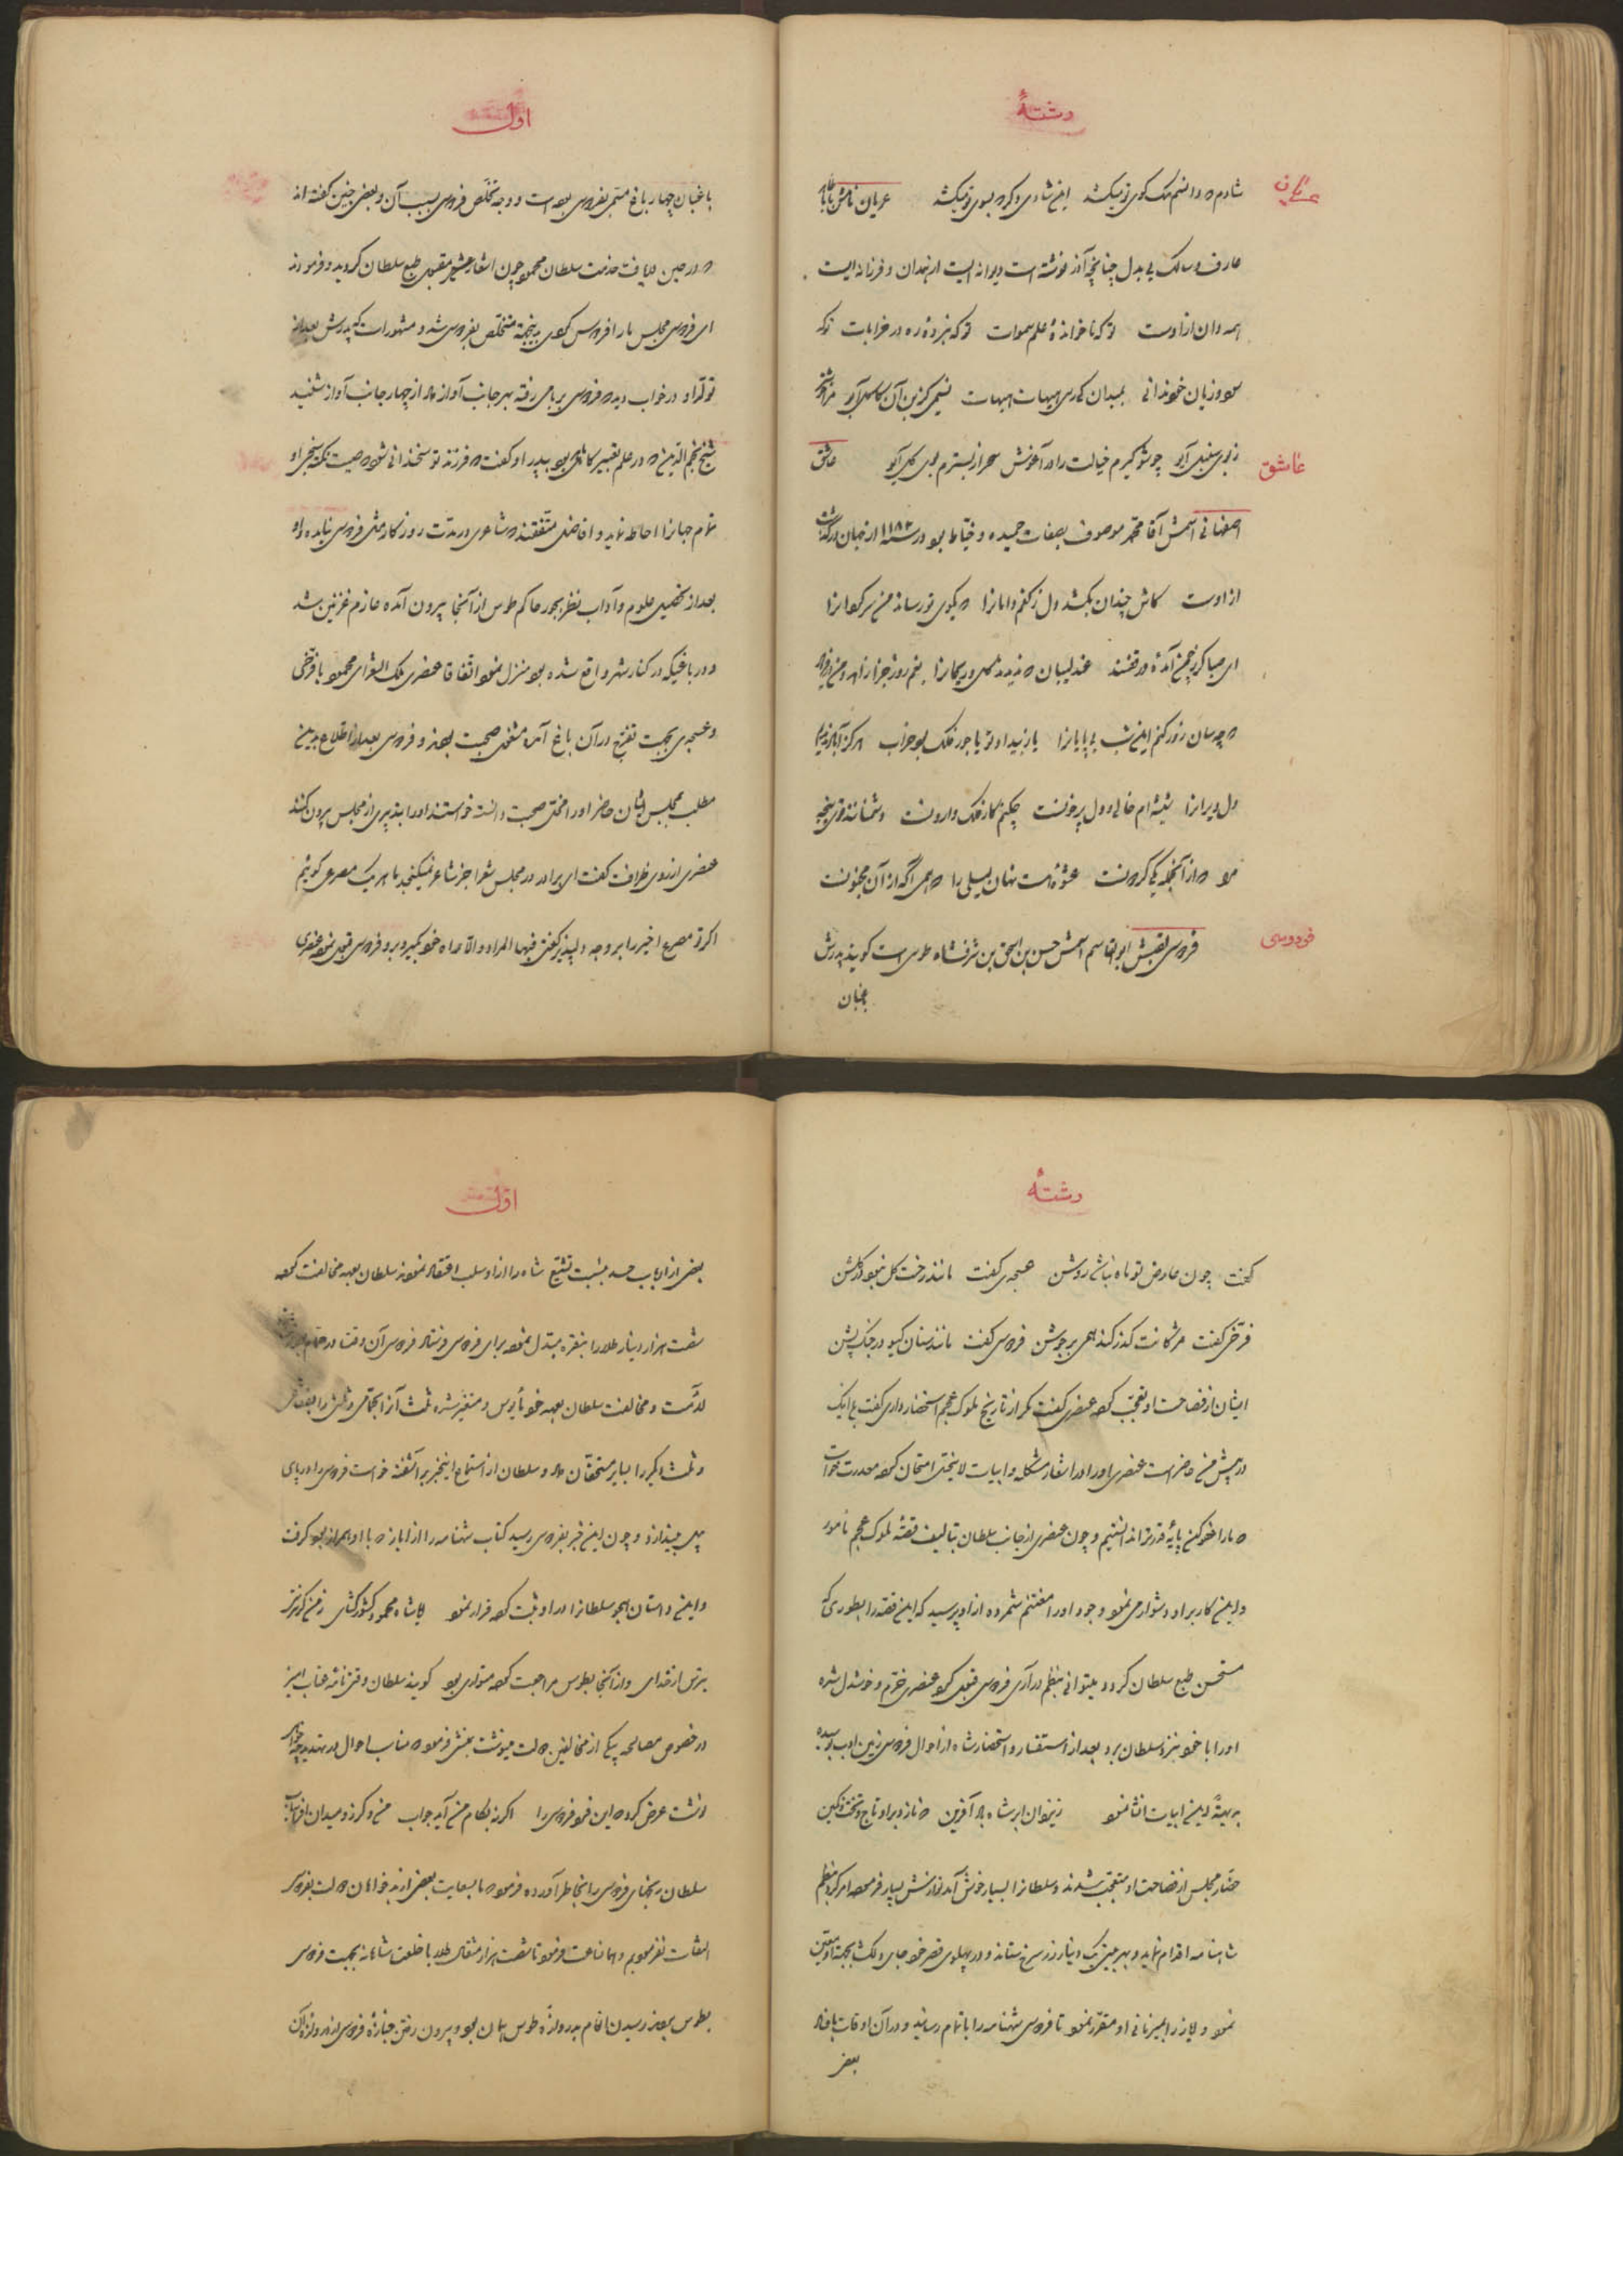 رشتهٔ
عریان
شادم که دانم سگ کوی تو میکشد این شادی دگر که بسوی تو میکشد عریان نامش بابا طاهر
عارف و سالک بی بدل چنانچه آذر نوشته است دیوانه ایست ارجمندان و فرزانه ایست
همه دان از اوست تو که ناخوانده‌ٔ علم سموات تو که نبرده‌ٔ ره در خرابات تو که
سود و زیان خود ندانی بمیدان کی رسی هیهات هیهات نسیمی کزین آن کاکل آیو مرا خوشتر
ز بوی سنبل آیو چو شو گیرم خیالت را در آغوش سحر از بسترم بوی گل آیو عاشق
عاشق
اصفهانی اسمش آقا محمد موصوف بصفات حمیده و خیاط بود در سنهٔ ۱۱۸۲ از جهان درگذشت
از اوست کاش چندان بکشد دل ز کفم دامانرا که بکوی تو رساند من سرگردانرا
ای صبا گر ز چمن آمدهٔ در قفسند عندلیبان که ندیدند گل و ریحانرا
که چه سان روز کنم این شب بی پایانرا یا ز بیداد تو یا جور فلک بود خراب هرگز آباد ندیدیم
دل ویرانرا شیشه ام خالی و دل پر خونست چکنم کار فلک وارونست
مو که از آنجمله یکی گردونست عشوه هست نهان لیلی را که همی آگه از آن مجنونست
فردوسی
فردوسی لقبش ابوالقاسم اسمش حسن بن اسحق بن شرفشاه طوسی است گویند پدرش
باغبان
اول
باغبان چهار باغ مسمی بفردوس بوده است و وجه تخلص فردوسی بسبب آن و بعضی چنین گفته اند
که در حین دریافت خدمت سلطان محمود چون اشعارش مقبول طبع سلطان گردید و فرمودند
ای فردوسی مجلس ما را فردوس کردی بدینجهة متخلص بفردوسی شد و مشهور است که پدرش بعد از
تولد او در خواب دید که فردوسی بر بامی رفته بهر جانب آواز داد از چهار جانب آواز شنید
شیخ نجم الدین که در علم تعبیر کامل بود بپدر او گفت که فرزند تو سخندانی شود که صیت نکته سنجی او
تمام جهانرا احاطه نماید و افاضل متفقند که شاعری در مدت روزگار مثل فردوسی نیامده و او
بعد از تحصیل علوم و آداب نظر بجور حاکم طوس از آنجا بیرون آمده عازم غزنین شد
و در باغیکه در کنار شهر واقع شده بود منزل نمود اتفاقا عنصری ملک الشعرای محمود با فرخی
و عسجدی بجهت تفرج در آن باغ آمده مشغول صحبت بودند و فردوسی بعد از اطلاع بدین
مطلب بمجلس ایشان حاضر او را مخل صحبت دانسته خواستند او را بتدبیری از مجلس بیرون کنند
عنصری از روی ظرافت گفت ای برادر در مجلس شعرا جز شاعر نمیگنجد ما هر یک مصرعی گوئیم
اگر تو مصرع اخیر را بر وجه دلپذیر گفتی فبها المراد و الا راه خود گیر و برو فردوسی قبول نمود عنصری
رشتهٔ
گفت چون عارض تو ماه نباشد روشن عسجدی گفت مانند رخت گل نبود در گلشن
فرخی گفت مژگانت گذر کند همی بر جوشن فردوسی گفت مانند سنان گیو در جنگ پشن
ایشان از فصاحت او تعجب کرده عنصری گفت مگر از تاریخ ملوک عجم استحضار داری گفت بلی اینک
در پیش من حاضر است عنصری او را در اشعار مشکله و ابیات لاینحل امتحان کرده معذرت خواست
که ما را عفو کن پایهٔ قدر تو ندانستیم و چون عنصری از جانب سلطان بتالیف قصهٔ ملوک عجم مامور
و این کار بر او دشوار می نمود وجود او را مغتنم شمرده از او پرسید که این قصه را بطوری که
مستحسن طبع سلطان گردد میتوانی بنظم در آری فردوسی قبول کرد عنصری خرم و خوشدل شده
او را با خود بنزد سلطان برد بعد از استفسار و استحضار شاه از احوال فردوسی زمین ادب بوسیده
بدیهةً این ابیات انشا نمود ز یزدان بر شاه باد آفرین که نازد بر او تاج و تخت و نگین
حضار مجلس از فصاحت او متعجب شدند و سلطانرا بسیار خوش آمد نوازش بسیار فرموده امر کرد بنظم
شاهنامه اقدام نماید و بهر بیتی یک دینار زر سرخ ستاند و در پهلوی قصر خود جای دلکش بجهة او معین
نمود و ایاز را بمیزبانی او مقرر نمود تا فردوسی شهنامه را باتمام رسانید و در آن اوقات
بعضی
اول
بعضی از ارباب حسد بنسبت تشیع شاه را از او سلب اعتقاد نمودند سلطان بعهد مخالفت کرده
شصت هزار دینار طلا را بنقره مبدل نموده برای فردوسی فرستاد فردوسی آن وقت در حمام بود
و مخالفت سلطان بعهد خود مأیوس و متغیر شده ثلث آنرا بحمامی و ثلثی را بفقاعی
و ثلث دیگر را بسایر مستحقان داد و سلطان از استماع اینخبر بر آشفته خواست فردوسی را در پای
پیل بیندازد و چون این خبر بفردوسی رسید کتاب شهنامه را از ایاز که با او همراز بود گرفت
و این داستان هجو سلطانرا در او ثبت کرده فرار نمود ایا شاه محمود کشورگشای ز من گر نترسی
بترس از خدای و از آنجا بطوس مراجعت کرده متواری بود گویند سلطان وقتی نامهٔ عتاب آمیز
در خصوص مصالحه بیکی از مخالفین دولت مینوشت بمنشی فرمود که مناسب احوال در تهدید چه
نوشت عرض کرد که این فرد فردوسی را اگر نه بکام من آید جواب من و گرز و میدان افراسیاب
سلطان رنجهای فردوسی را بخاطر آورده فرمود که ما بسعایت بعضی از بدخواهان دولت بفردوسی
التفات نفرمودیم و همانساعت فرمود تا شصت هزار مثقال طلا با خلعت شاهانه بجهت فردوسی
بطوس بردند رسیدن انعام بدروازهٔ طوس همان بود و بیرون رفتن جنازهٔ فردوسی از دروازهٔ آن